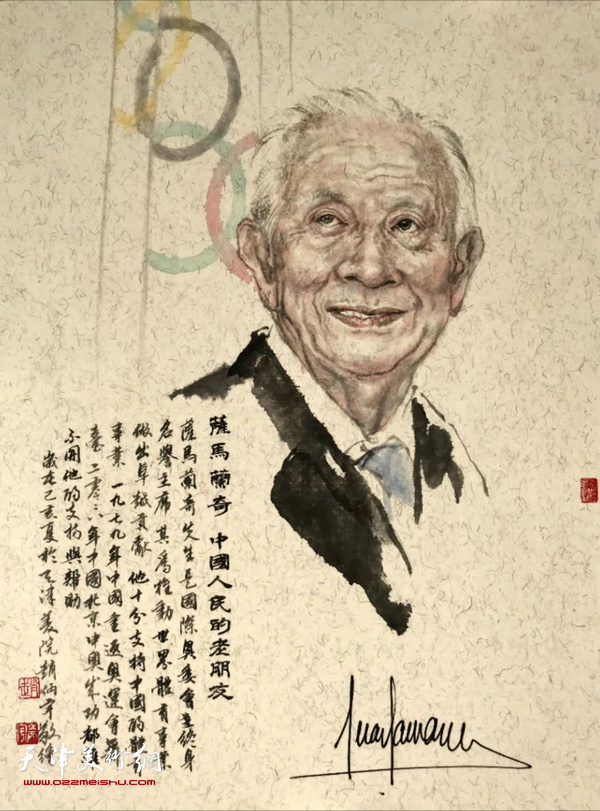 薩馬蘭奇 中國人民的老朋友
薩馬蘭奇先生是國際奧委會主終身
名譽主席 其為推動世界體育事業
做出卓越貢獻 他十分支持中國的體育
事業 一九七九年中國重返奧運會舞
臺 二零零八年中國北京申奧成功都離
不開他的支持與幫助
歲在己亥夏於天津美院趙炳宇敬繪
天津美術網
www.022meishu.com